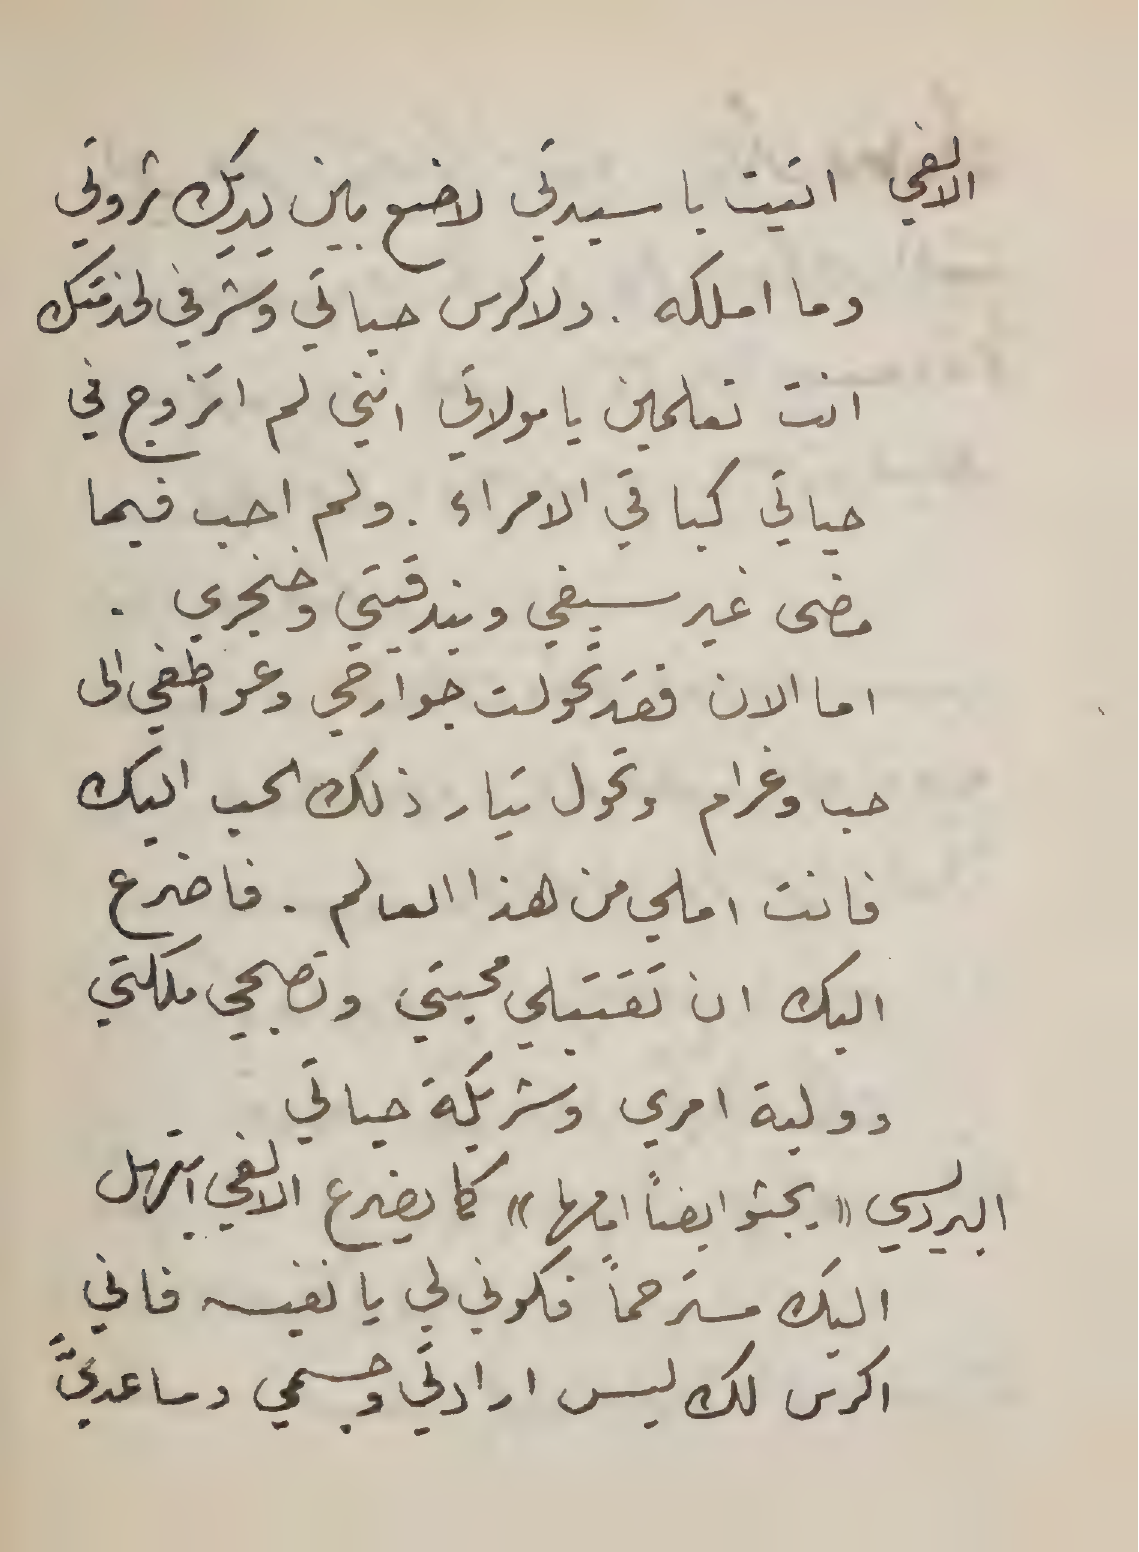 الالفي اتيت يا سيدتي لاضع بين يديك ثروتي
وما املكه . ولاكرس حياتي وشرفي لخدمتك
انت تعلمين يا مولاتي انني لم اتزوج في
حياتي كباقي الامراء . ولم احب فيما
مضى غير سيفي وبندقيتي وخنجري .
اما الان فقد تحولت جوارحي وعواطفي الى
حب وغرام وتحول تيار ذلك الحب اليك
فانت املي من هذا العالم . فاضرع
اليك ان تقتبلي محبتي وتصبحي ملكتي
وولية امري وشريكة حياتي
البرديسي « يجثو ايضاً امامها » كما يضرع الالفي ابتهل
اليك مسترحماً فكوني لي يا نفيسه فاني
اكرس لك ليس ارادتي وجسمي وساعديَّ